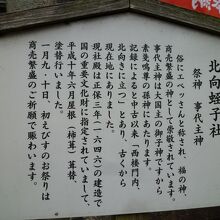 北向蛭子社
祭神 事代主神
俗にべつさんと称され、福の神、
商売繁盛の神として崇敬されています。
事代主神は大国主の御子神ですから
素戔鳴尊の孫神にあたります。
記録によると中古以来「西楼門内、
北向きに立つ」とあり、古くから
現在地にありました。
現社殿は正保三年(一六四六)の建造で
国の重要文化財に指定されていまして、
平成十年六月屋根(杮葺)葺替、
塗替を行いました。
一月九・十日、初えびすのお祭りは
商売繁盛のご祈願で賑わいます。